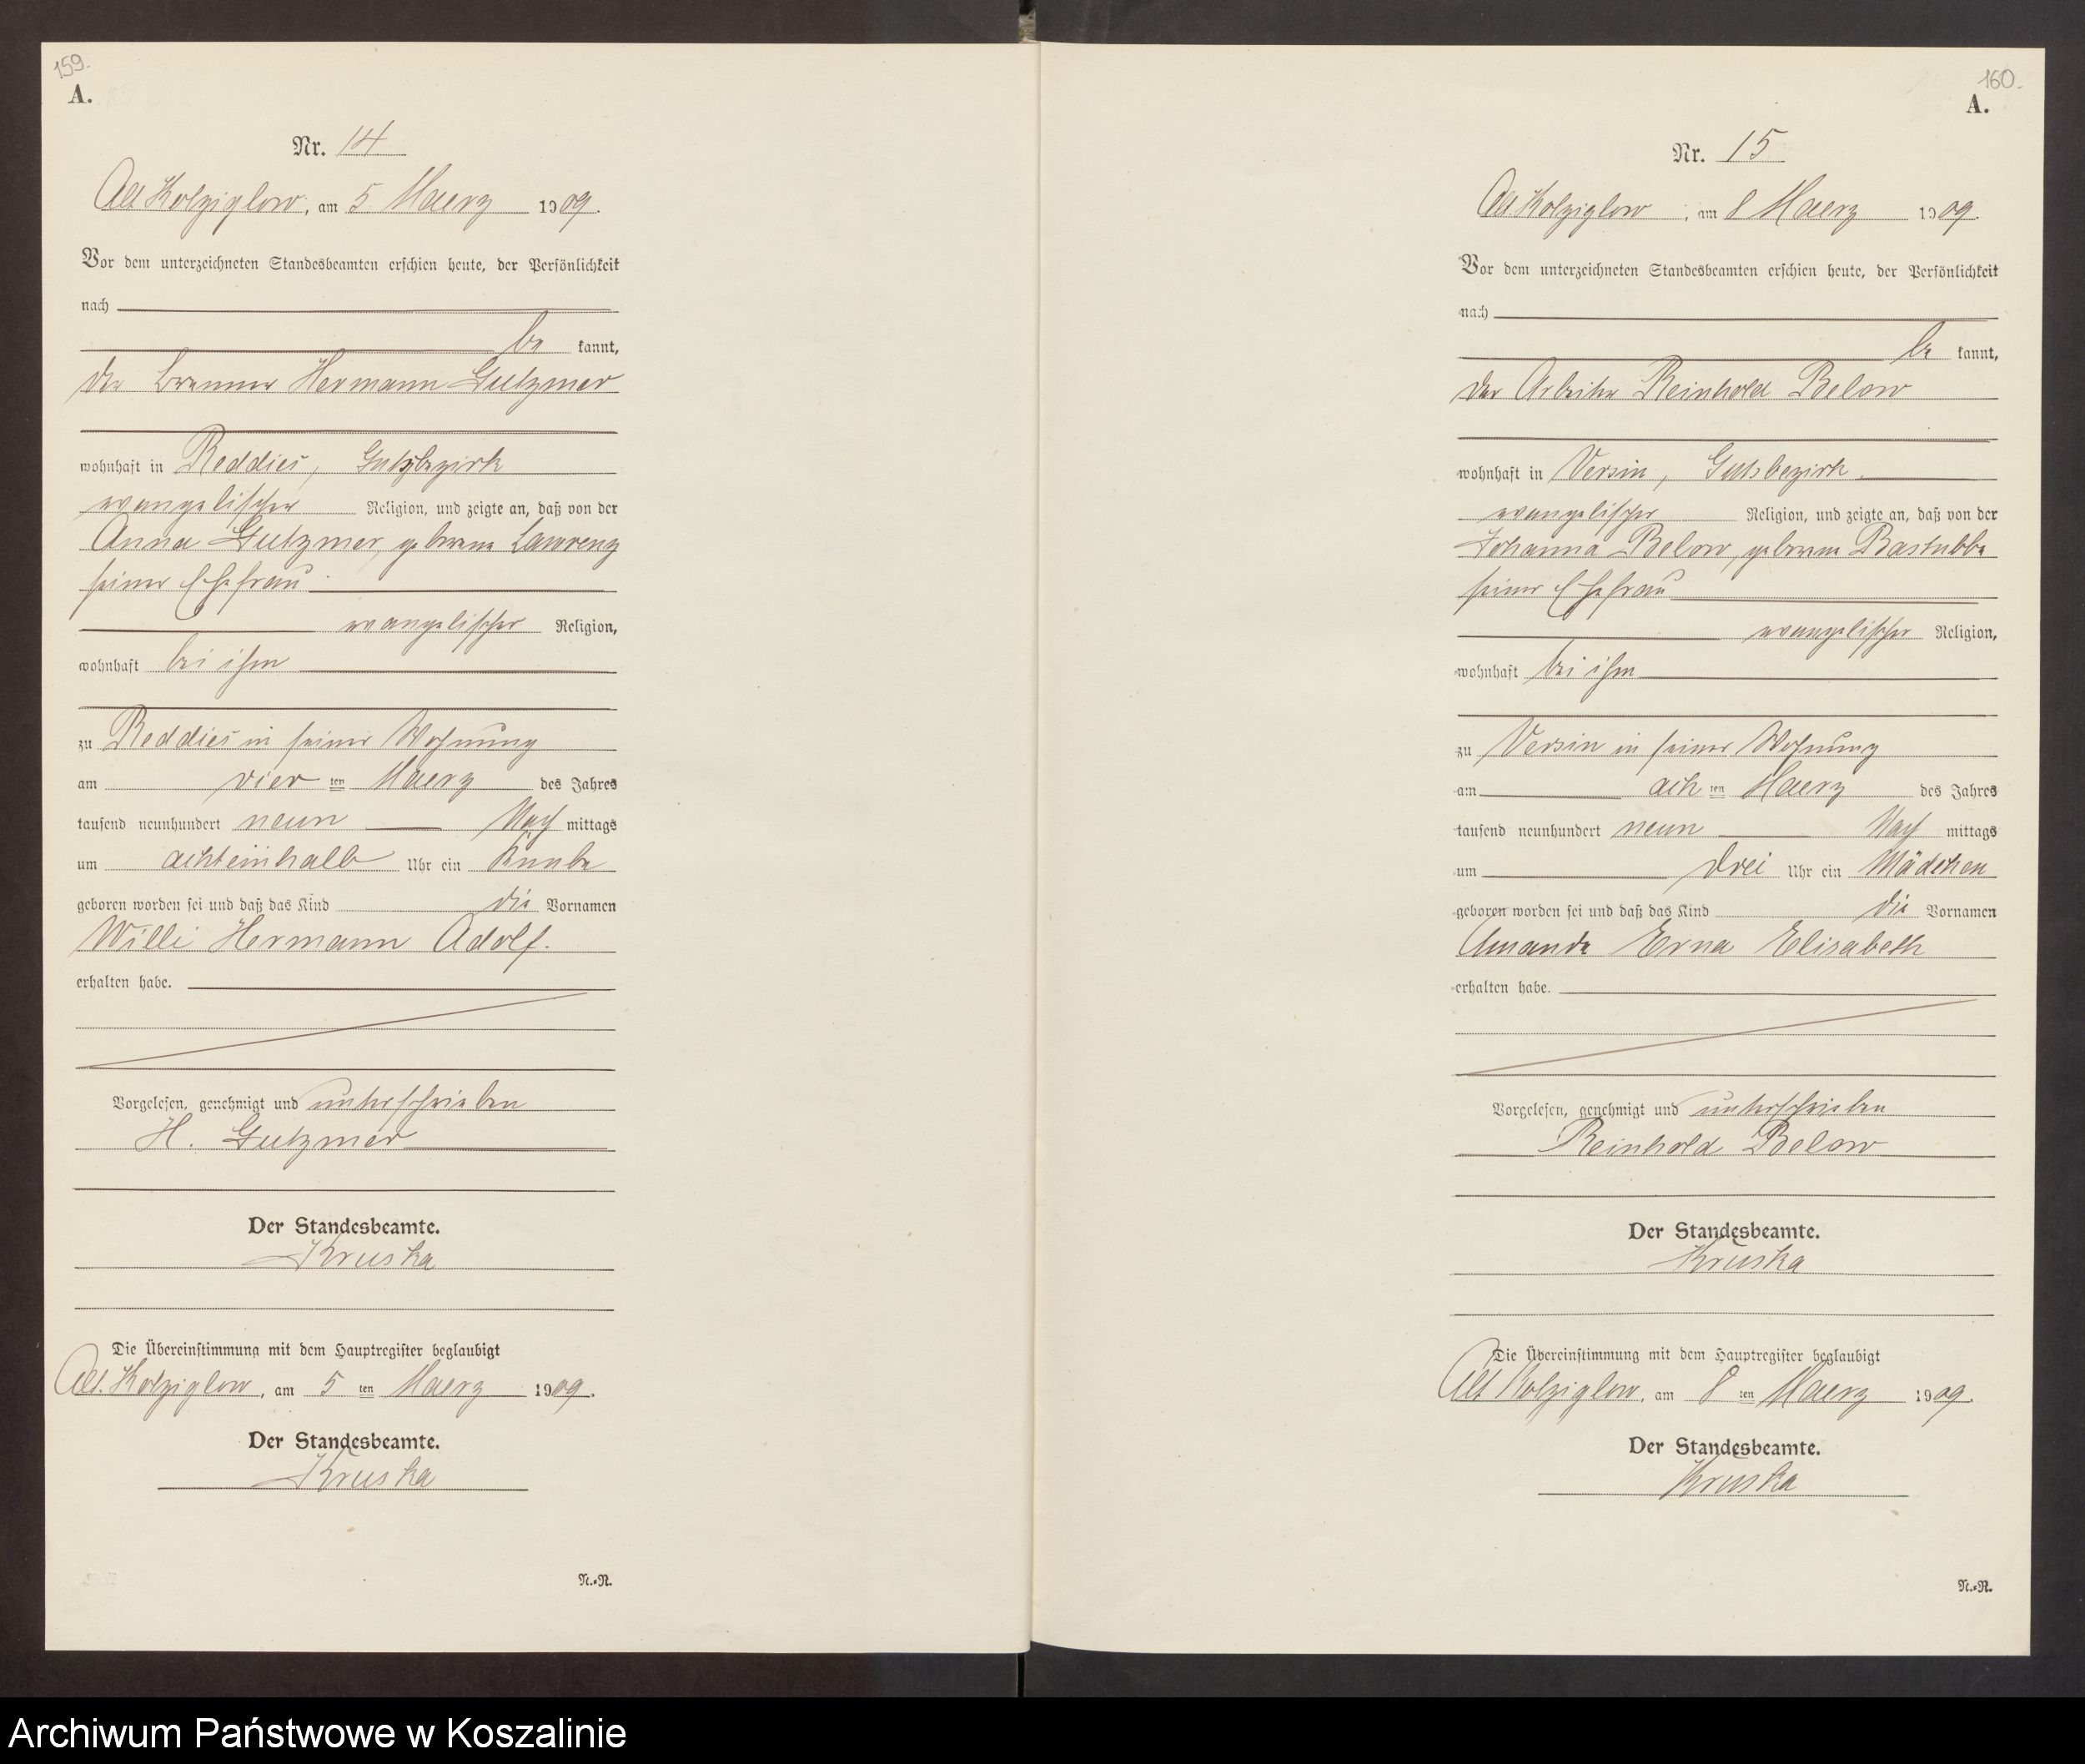 159.
A.
Nr. 14
Alt Kolziglow, am 5 Maerz 1909.
Vor dem unterzeichneten Standesbeamten erschien heute, der Persönlichkeit
nach
be kannt,
der Brenner Hermann Gutzmer
wohnhaft in Reddies, Gutsbezirk
evangelischer Religion, und zeigte an, daß von der
Anna Gutzmer, geborene Lawrenz
seiner Ehefrau
evangelischer Religion,
wohnhaft bei ihm
zu Reddies in seiner Wohnung
am vier ten Maerz des Jahres
tausend neunhundert neun Nach mittags
um achteinhalb Uhr ein Knabe
geboren worden sei und daß das Kind die Vornamen
Willi Hermann Adolf.
erhalten habe.
Vorgelesen, genehmigt und unterschrieben
H. Gutzmer
Der Standesbeamte.
Kruska
Die Übereinstimmung mit dem Hauptregister beglaubigt
Alt. Kolziglow, am 5 ten Maerz 1909.
Der Standesbeamte.
Kruska
N.-R.
160.
A.
Nr. 15
Alt. Kolziglow, am 8 Maerz 1909.
Vor dem unterzeichneten Standesbeamten erschien heute, der Persönlichkeit
nach
be kannt,
der Arbeiter Reinhold Below
wohnhaft in Versin, Gutsbezirk
evangelischer Religion, und zeigte an, daß von der
Johanna Below, geborene Bastubbe
seiner Ehefrau
evangelischer Religion,
wohnhaft bei ihm
zu Versin in seiner Wohnung
am ach ten Maerz des Jahres
tausend neunhundert neun Nach mittags
um drei Uhr ein Mädchen
geboren worden sei und daß das Kind die Vornamen
Amanda Erna Elisabeth
erhalten habe.
Vorgelesen, genehmigt und unterschrieben
Reinhold Below
Der Standesbeamte.
Kruska
Die Übereinstimmung mit dem Hauptregister beglaubigt
Alt Kolziglow, am 8 ten Maerz 1909.
Der Standesbeamte.
Kruska
N.-R.
Archiwum Państwowe w Koszalinie